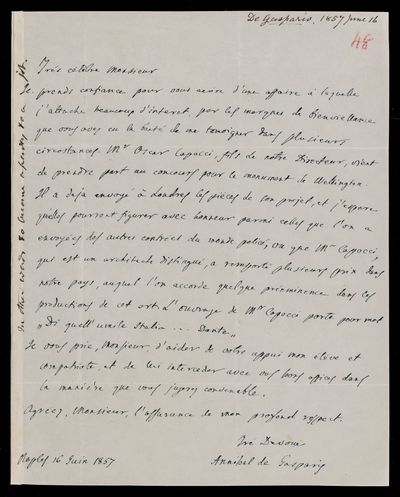 De Gasparis, 1857 June 16
48
Très célèbre Monsieur
Je prends confiance pour vous écrire d'une affaire à laquelle
j'attache beaucoup d'interet, par les marques de bienveillance
que vous avez eu la bonté de me temoigner dans plusieurs
circostances. Mr Oscar Capocci, fils de notre Directeur, vient
de prendre part au concours pour le monument de Wellington.
Il a deja envoyé à Londres les pièces de son projet, et j'espere
qu'elles pourront figurer avec honneur parmi celles que l'on a
envoyées des autres contrées du monde policé, vu que Mr Capocci,
qui est un architecte distingué, a remporté plusieurs prix dans
notre pays, auquel l'on accorde quelque prééminence dans les
productions de cet art. L'ouvrage de Mr Capocci porte pour mot
"Di quell'umile Italia ... Dante"
Je vous prie, Monsieur, d'aider de votre appui mon élève et
compatriote, et de lui interceder avec vos bons offices dans
la manière que vous jugerez convenable.
Agreez, Monsieur, l'assurance de mon profond respect.
Vre Devoué
Annibal de Gasparis
Naples 16 Juin 1857
In other words to become